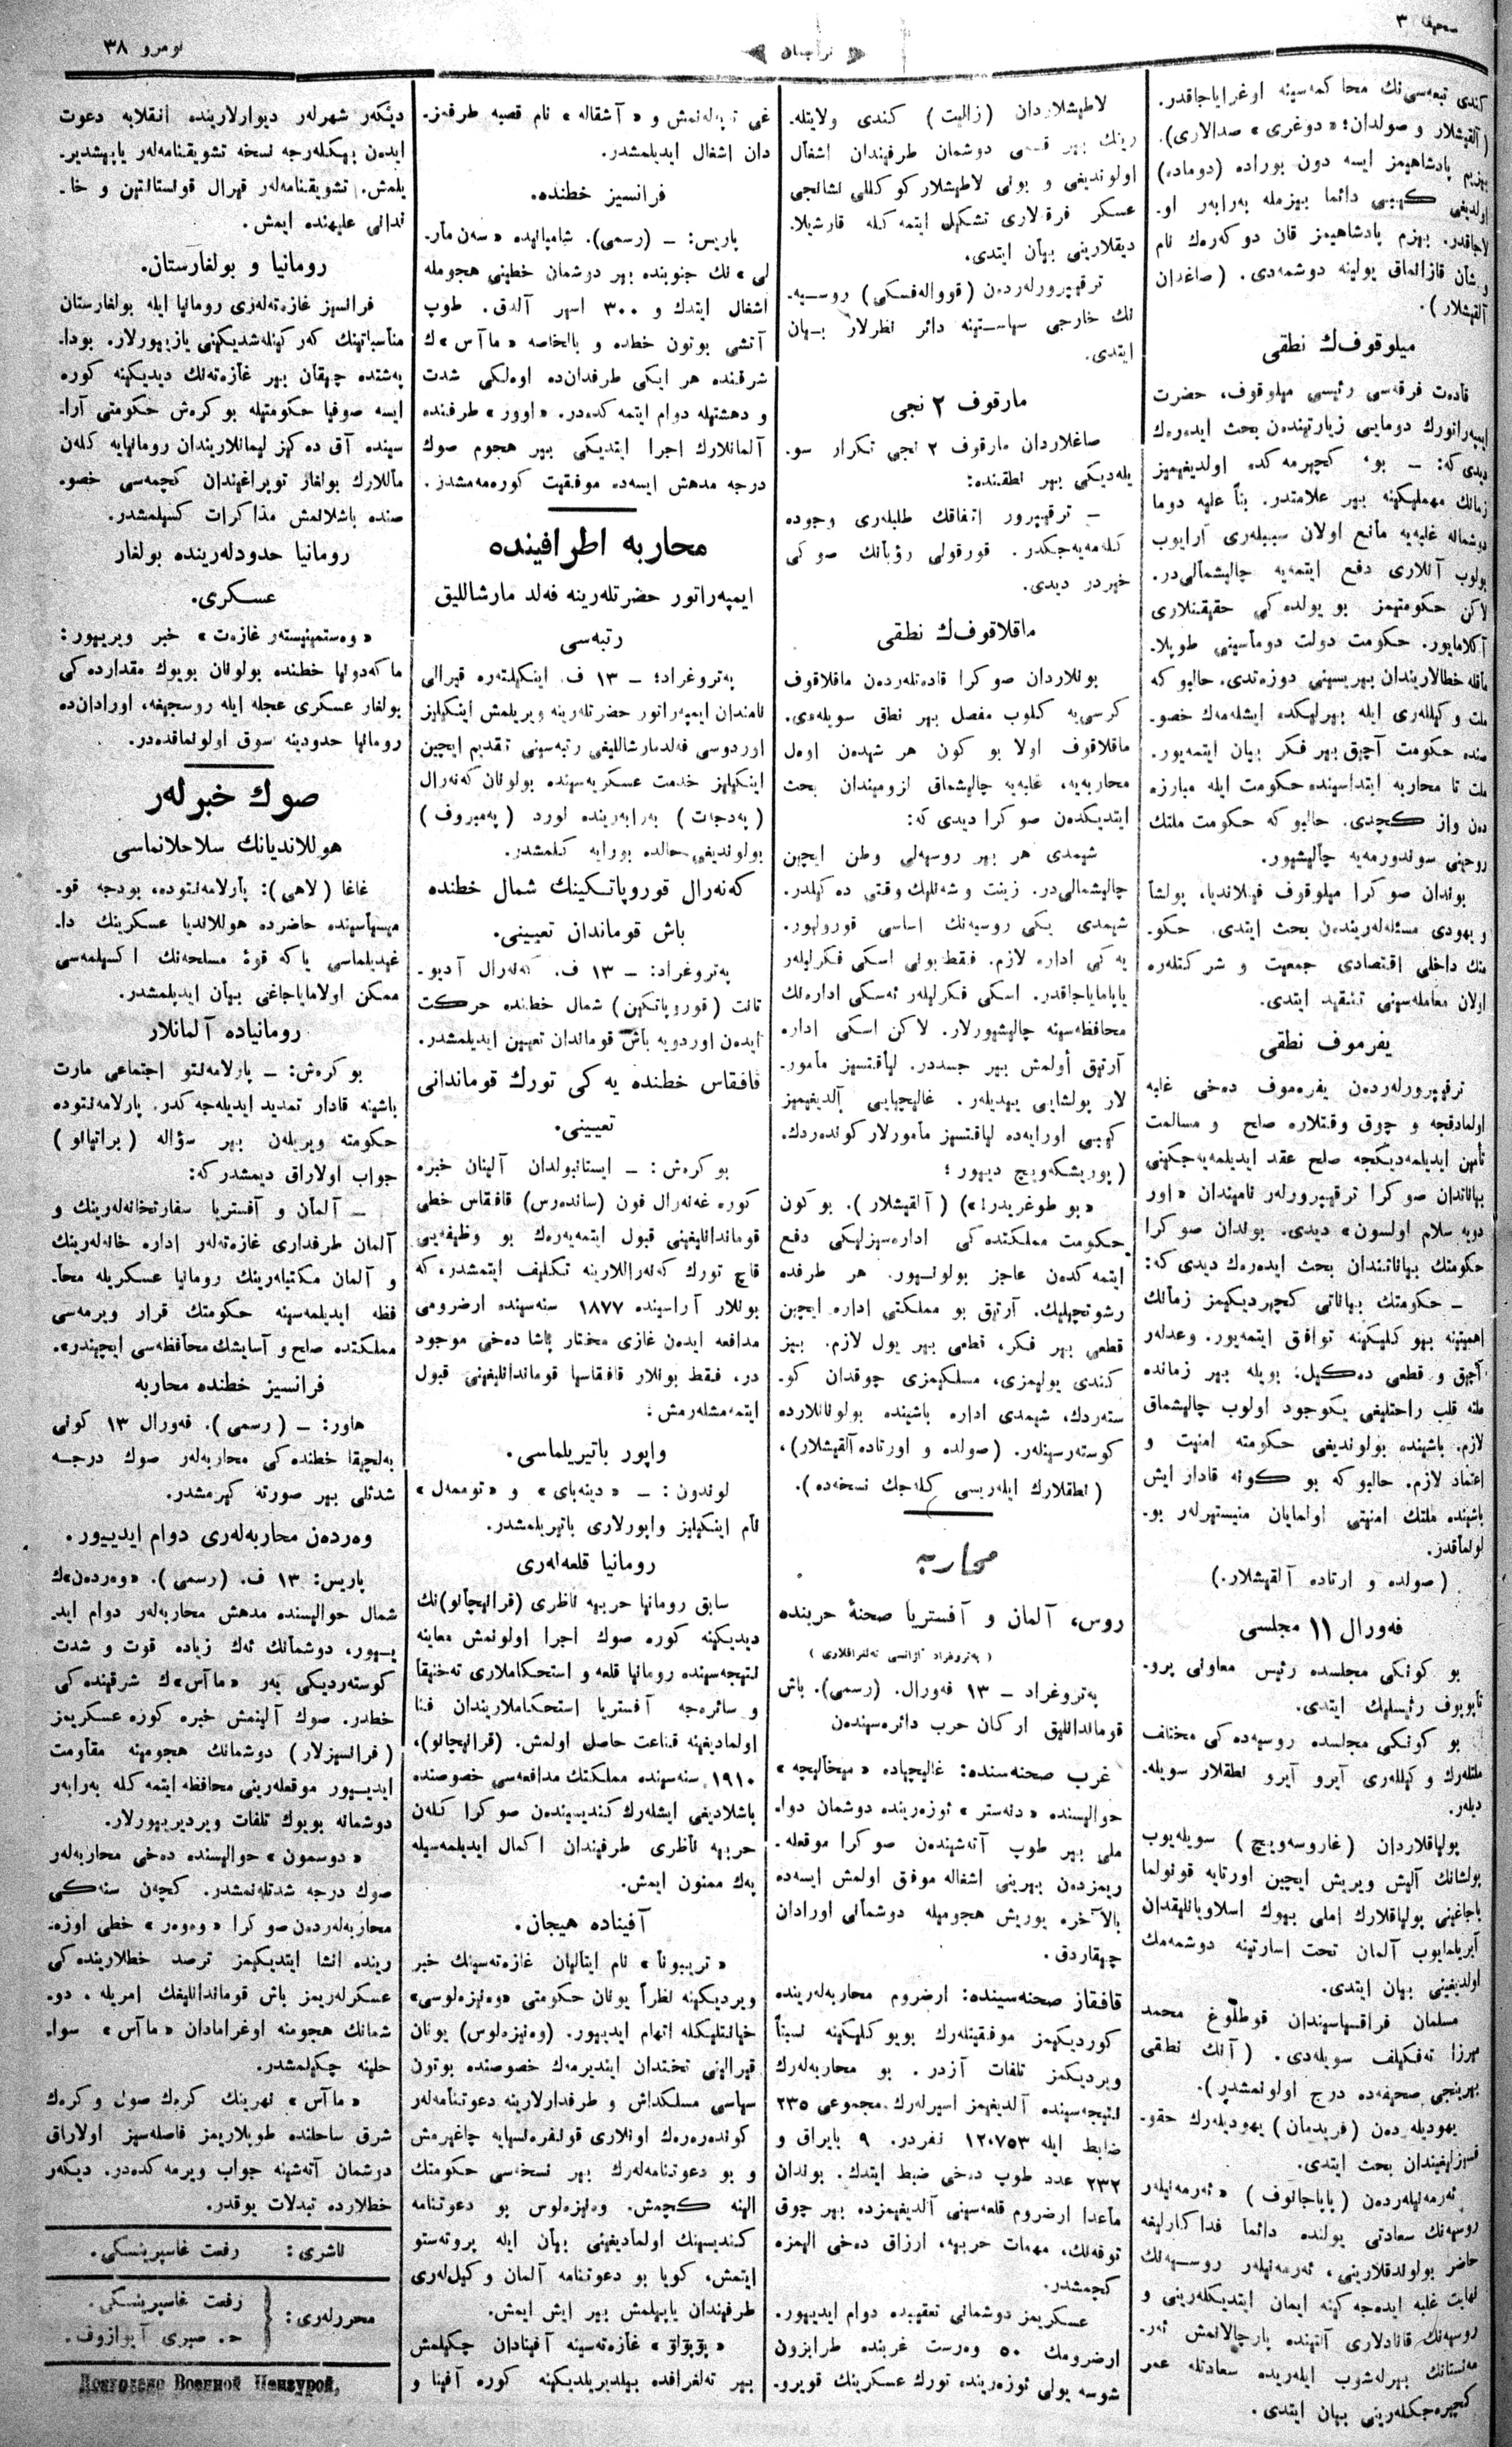 صحیفه ۳
ترجمان
نومرو ۳۸
كندی تبعه‌سی‌نك محاكمه‌سینه اوغرایاجاقدر.
(آلقیشلار و صولدان؛ «دوغری» صدالاری).
بیزیم پادشاهیمز ایسه دون بوراده (دوماده)
اولدیغی كبیبی دائما بیزمله به‌رابه‌ر او-
لاجاقدر. بیزم پادشاهیمز قان دوكه‌رك نام
و شان قازانماق یولینه دوشمه‌دی. (صاغدان
آلقیشلار).
میلوقوف‌ك نطقی
قاده‌ت فرقه‌سی رئیسی میلوقوف، حضرت
ایمپه‌راتورك دومایی زیارتیندن بحث ایده‌رك
دیدی كه: — بو، كچیرمه‌كده اولدیغیمیز
زمانك مهملیكینه بیر علامتدر. بناً علیه دوما
دوشمانه غلبه‌یه مانع اولان سببلەری آرایوب
بولوب آنلاری دفع ایتمه‌یه چالیشمالی‌در.
لاكن حكومتیمز بو یولده‌كی حقیقتلاری
آكلامایور. حكومت دولت دوماسینی طوپلا-
ماقله خطالاریندان بیریسینی دوزه‌تدی. حالبو كه
ملت وكیللەری ایله بیرلیكده ایشله‌مه‌ك خصو-
صنده حكومت آچیق بیر فكر بیان ایتمه‌یور.
ملت تا محاربه ابتداسینده حكومت ایله مبارزه
ده‌ن واز كچدی. حالبو كه حكومت ملتك
روحینی سوندورمه‌یه چالیشیور.
بوندان صوكرا میلوقوف فینلاندیا، پولشا
و یهودی مسئله‌لەریندەن بحث ایتدی. حكو-
متك داخلی اقتصادی جمعیت و شركتلەره
اولان معامله‌سینی تنقید ایتدی.
یفرموف نطقی
ترقیپرورلەردن یفره‌موف ده‌خی غلبه
اولمادقجه و چوق وقتلاره صلح و مسالمت
تأمین ایدیلمه‌دیكجه صلح عقد ایدیلمه‌یه‌جكینی
بیاناتدان صوكرا ترقیپرورلەر نامیندان «اور
دویه سلام اولسون» دیدی. بوندان صوكرا
حكومتك بیاناتندان بحث ایده‌رك دیدی كه:
— حكومتك بیاناتی كچیردیكیمز زمانك
اهمیتینه بیوكلیكینه توافق ایتمه‌یور. وعدلەر
آچیق و قطعی ده‌كیل: بویله بیر زمانده
ملته قلب راحتلیغی یكوجود اولوب چالیشماق
لازم. باشینده بولوندیغی حكومته امنیت و
اعتماد لازم. حالبو كه بو كونه قادار ایش
باشینده ملتك امنیتی اولمایان منیستیرلەر بو-
لونماقدر.
(صولده و ارتاده آلقیشلار.)
فه‌ورال ۱۱ مجلسی
بو كونكی مجلسده رئیس معاونی پرو-
تاپوپوف رئیسلیك ایتدی.
بو كونكی مجلسده روسیه‌ده‌كی مختلف
ملتلەرك وكیللەری آیرو آیرو نطقلار سویله-
دیلەر.
پولیاقلاردان (غاروسه‌ویچ) سویله‌یوب
پولشانك آلیش ویریش ایچین اورتایه قونولما
یاجاغینی پولیاقلارك املی بیوك اسلاویانلیقدان
آیریلمایوب آلمان تحت اسارتینه دوشمه‌مك
اولدیغینی بیان ایتدی.
مسلمان فراقسیاسیندان قوطلوغ محمد
میرزا ته‌فكیلف سویله‌دی. (آنك نطقی
بیرینجی صحیفه‌ده درج اولونمشدر).
یهودیلەردن (فریدمان) یهودیلەرك حقو-
قسیزلیغیندان بحث ایتدی.
ئه‌رمه‌نیلەردن (پاپاجانوف) «ئه‌رمه‌نیلەر
روسیه‌نك سعادتی یولنده دائما فداكارلیغه
حاضر بولولدقلارینی، ئه‌رمه‌نیلەر روسیه‌نك
نهایت غلبه ایده‌جه‌كینه ایمان ایتدیكلەرینی و
روسیه‌نك قانادلاری آلتینده پارچالانمش ئەر-
مه‌نستانك بیرله‌شوب ایلەریده سعادتله عمر
كچیره‌جكلەرینی بیان ایتدی.
لاطیشلاردان (زالیت) كندی ولایتله-
رینك بیر قسمی دوشمان طرفیندان اشغال
اولوندیغی و بونی لاطیشلار كوكللی نشانجی
عسكر فرقه‌لاری تشكیل ایتمه‌كله قارشیلا-
دیقلارینی بیان ایتدی.
ترقیپرورلەردەن (قوواله‌فسكی) روسیه-
نك خارجی سیاستینه دائر نظرلار بیان
ایتدی.
مارقوف ۲ نجی
صاغلاردان مارقوف ۲ نجی تكرار سو-
یله‌دیكی بیر نطقنده:
— ترقیپرور اتفاقك طلبلەری وجوده
كله‌مه‌یه‌جكدر. قورقولی رؤیانك صوكی
خیردر دیدی.
ماقلاقوف‌ك نطقی
بونلاردان صوكرا قاده‌تلەردەن ماقلاقوف
كرسی‌یه كلوب مفصل بیر نطق سویله‌دی.
ماقلاقوف اولا بو كون هر شیدەن اوه‌ل
محاربه‌یه، غلبه‌یه چالیشماق لزومیندان بحث
ایتدیكدەن صوكرا دیدی كه:
شیمدی هر بیر روسیه‌لی وطن ایچین
چالیشمالی‌در. زینت و شه‌نلیك وقتی ده‌كیلدر.
شیمدی یكی روسیه‌نك اساسی قورولیور.
یه‌كی اداره لازم. فقط بونی اسكی فكرلیلەر
یاپامایاجاقدر. اسكی فكرلیلەر ئه‌سكی اداره‌نك
محافظه‌سینه چالیشیورلار. لاكن اسكی اداره
آرتیق أولمش بیر جسددر. لیاقتسیز مأمور-
لار پولشایی ییدیلەر. غالیچیایی آلدیغیمیز
كیبی اورایه‌ده لیاقتسیز مأمورلار كوندەردك.
(پوریشكه‌ویچ دییور؛
«بو طوغریدر!») (آلقیشلار). بو كون
حكومت مملكتده‌كی اداره‌سیزلیكی دفع
ایتمه‌كدەن عاجز بولونیور. هر طرفده
رشوتچیلیك. آرتیق بو مملكتی اداره ایچین
قطعی بیر فكر، قطعی بیر یول لازم. بیز
كندی یولیمزی، مسلكیمزی چوقدان كو-
سته‌ردك، شیمدی اداره باشینده بولونانلارده
كوسته‌رسینلەر. (صولده و اورتاده آلقیشلار)،
(نطقلارك ایلەریسی كله‌جك نسخه‌ده).
محاربه
روس، آلمان و آفستریا صحنهٔ حربنده
(په‌تروغراد آژانسی ته‌لغرافلاری)
په‌تروغراد — ۱۳ فه‌ورال. (رسمی). باش
قوماندانلیق اركان حرب دائره‌سیندەن
غرب صحنه‌سنده: غالیچیاده «میخالیچه»
حوالیسنده «دنه‌ستر» ئوزه‌رینده دوشمان دوا-
ملی بیر طوپ آته‌شیندەن صوكرا موقعله-
ریمزدەن بیرینی اشغاله موفق اولمش ایسه‌ده
بالآخره یوریش هجومیله دوشمانی اورادان
چیقاردق.
قافقاز صحنه‌سینده: ارضروم محاربه‌لەرینده
كوردیكیمز موفقیتلەرك بویوكلیكینه نسبتاً
ویردیكمز تلفات آزدر. بو محاربه‌لەرك
نتیجه‌سینده آلدیغیمز اسیرلەرك مجموعی ۲۳۵
ضابط ایله ۱۲۰۷۵۳ نفردر. ۹ بایراق و
۲۳۲ عدد طوپ ده‌خی ضبط ایتدك. بوندان
ماعدا ارضروم قلعه‌سینی آلدیغیمزده بیر چوق
توفه‌نك، مهمات حربیه، ارزاق ده‌خی الیمزه
كچمشدر.
عسكریمز دوشمانی تعقیبده دوام ایدیور.
ارضرومك ۵۰ وه‌رست غربنده طرابزون
شوسه یولی ئوزه‌رینده تورك عسكرینك قویرو-
غی تپه‌له‌نمش و «آشقاله» نام قصبه طرفمز-
دان اشغال ایدیلمشدر.
فرانسیز خطنده.
پاریس: — (رسمی). شامپانیده «سه‌ن مار-
لی» نك جنوبنده بیر دوشمان خطینی هجومله
اشغال ایتدك و ۳۰۰ اسیر آلدق. طوپ
آتشی بوتون خطده و بالخاصه «ماآس»ك
شرقنده هر ایكی طرفدان‌ده اوه‌لكی شدت
و دهشتیله دوام ایتمه‌كده‌در. «اوور» طرفنده
آلمانلارك اجرا ایتدیكی بیر هجوم صوك
درجه مدهش ایسه‌ده موفقیت كوره‌مه‌مشدر.
محاربه اطرافینده
ایمپه‌راتور حضرتلەرینه فه‌لد مارشاللیق
رتبه‌سی
په‌تروغراد؛ — ۱۳ ف. اینكیلتەره قیرالی
نامندان ایمپه‌راتور حضرتلەرینه ویریلمش اینكیلیز
اوردوسی فه‌لدمارشاللیغی رتبه‌سینی تقدیم ایچین
اینكیلیز خدمت عسكریه‌سینده بولونان كه‌نه‌رال
(په‌دجه‌ت) به‌رابه‌رینده لورد (په‌مبروف)
بولوندیغی حالده بورایه كلمشدر.
كه‌نه‌رال قوروپاتكینك شمال خطنده
باش قوماندان تعیینی.
په‌تروغراد: — ۱۳ ف. كه‌نه‌رال آدیو-
تانت (قوروپاتكین) شمال خطنده حركت
ایدەن اوردویه باش قوماندان تعیین ایدیلمشدر.
قافقاس خطنده یه‌كی تورك قوماندانی
تعیینی.
بوكره‌ش: — ایستانبولدان آلینان خبره
كوره غه‌نه‌رال فون (ساندەرس) قافقاس خطی
قوماندانلیغینی قبول ایتمه‌یه‌رك بو وظیفه‌یی
قاچ تورك كه‌نه‌راللارینه تكلیف ایتمشدر، كه
بونلار آراسینده ۱۸۷۷ سنه‌سینده ارضرومی
مدافعه ایدەن غازی مختار پاشا ده‌خی موجود
در، فقط بونلار قافقاسیا قوماندانلیغینی قبول
ایتمه‌مشلەرمش.
واپور باتیریلماسی.
لوندون: — «دینه‌بای» و «توممه‌ل»
نام اینكیلیز واپورلاری باتیریلمشدر.
رومانیا قلعه‌لەری
سابق رومانیا حربیه ناظری (قرانیچانو)نك
دیدیكینه كوره صوك اجرا اولونمش معاینه
نتیجه‌سینده رومانیا قلعه و استحكاملاری ته‌خنیقا
و سائره‌جه آفستریا استحكاملاریندان فنا
اولمادیغینه قناعت حاصل اولمش. (قرانیچانو)،
۱۹۱۰ سنه‌سینده مملكتك مدافعه‌سی خصوصنده
باشلادیغی ایشلەرك كندیسیندەن صوكرا كلەن
حربیه ناظری طرفیندان اكمال ایدیلمه‌سیله
پەك ممنون ایمش.
آفیناده هیجان.
«تریبونا» نام ایتالیان غازه‌ته‌سینك خبر
ویردیكینه نظراً یونان حكومتی «وه‌نیزه‌لوسی»
خیانتلیكله اتهام ایدییور. (وه‌نیزه‌لوس) یونان
قیرالینی تختدان ایندیرمه‌ك خصوصنده بوتون
سیاسی مسلكداش و طرفدارلارینه دعوتنامه‌لەر
كوندەره‌رەك اونلاری قونفره‌نسیایه چاغیرمش
و بو دعوتنامه‌لەرك بیر نسخه‌سی حكومتك
الینه كچمش. وه‌نیزه‌لوس بو دعوتنامه
كندیسینك اولمادیغینی بیان ایله پروته‌ستو
ایتمش، كویا بو دعوتنامه آلمان وكیل‌لەری
طرفیندان یاپیلمش بیر ایش ایمش.
غازه‌ته‌سینه آفینادان چكیلمش
بیر ته‌لغرافده بیلدیریلدیكینه كوره آفینا و
دیگەر شهرلەر دیوارلارینده انقلابه دعوت
ایدەن بیكلەرجه نسخه تشویقنامه‌لەر یاپیشدیر-
یلمش. تشویقنامه‌لەر قیرال قونستانتین و خا-
ندانی علیهنده ایمش.
رومانیا و بولغارستان.
فرانسیز غازه‌ته‌لەری رومانیا ایله بولغارستان
مناسباتینك كه‌ركینله‌شدیكینی یازییورلار. بودا-
په‌شتده چیقان بیر غازه‌ته‌نك دیدیكینه كوره
ایسه صوفیا حكومتیله بوكره‌ش حكومتی آرا-
سینده آق ده‌كیز لیمانلاریندان رومانیایه كلەن
ماللارك بولغار توپراغیندان كچمه‌سی خصو-
صنده باشلانمش مذاكرات كسیلمشدر.
رومانیا حدودلەرینده بولغار
عسكری.
«وه‌ستمینیسته‌ر غازه‌ت» خبر ویرییور:
ماكه‌دونیا خطنده بولونان بویوك مقدارده‌كی
بولغار عسكری عجله ایله روسجیغه، اورادان‌ده
رومانیا حدودینه سوق اولونماقده‌در.
صوك خبرلەر
هوللاندیانك سلاحلانماسی
غاغا (لاهی): پارلامه‌نتوده، بودجه قو-
میسیاسینده حاضرده هوللاندیا عسكرینك دا-
غیدیلماسی یاكه قوهٔ مسلحه‌نك اكسیلمه‌سی
ممكن اولامایاجاغی بیان ایدیلمشدر.
رومانیاده آلمانلار
بوكره‌ش: — پارلامه‌نتو اجتماعی مارت
باشینه قادار تمدید ایدیله‌جه‌كدر. پارلامه‌نتوده
حكومته ویریلەن بیر سؤاله (براتیانو)
جواب اولاراق دیمشدر كه:
— آلمان و آفستریا سفارتخانه‌لەرینك و
آلمان طرفداری غازه‌ته‌لەر اداره خانه‌لەرینك
و آلمان مكتبلەرینك رومانیا عسكریله محا-
فظه ایدیلمه‌سینه حكومتك قرار ویرمه‌سی
مملكتده صلح و آسایشك محافظه‌سی ایچیندر».
فرانسیز خطنده محاربه
هاور: — (رسمی). فه‌ورال ۱۳ كونی
به‌لچیقا خطنده‌كی محاربه‌لەر صوك درجه
شدتلی بیر صورته كیرمشدر.
وه‌ردەن محاربه‌لەری دوام ایدییور.
پاریس: ۱۳ ف. (رسمی). «وه‌ردەن»ك
شمال حوالیسنده مدهش محاربه‌لەر دوام اید-
ییور، دوشمانك ئەك زیاده قوت و شدت
كوسته‌ردیكی یەر «ماآس»ك شرقینده‌كی
خطدر. صوك آلینمش خبره كوره عسكریمز
(فرانسیزلار) دوشمانك هجومینه مقاومت
ایدییور موقعلەرینی محافظه ایتمه‌كله به‌رابه‌ر
دوشمانه بویوك تلفات ویردیرییورلار.
«دوسمون» حوالیسنده ده‌خی محاربه‌لەر
صوك درجه شدتله‌نمشدر. كچەن سنه‌كی
محاربه‌لەردەن صوكرا «وه‌وه‌ر» خطی اوزه-
رینده انشا ایتدیكیمز ترصد خطلارینده‌كی
عسكرلەریمز باش قوماندانلیغك امریله، دو-
شمانك هجومنه اوغرامادان «ماآس» سوا-
حلینه چكیلمشدر.
«ماآس» نهرینك كرەك صول و كرەك
شرق ساحلنده طوپلاریمز فاصله‌سیز اولاراق
دوشمان آته‌شینه جواب ویرمه‌كده‌در. دیكەر
خطلارده تبدلات یوقدر.
ناشری: رفعت غاسپرینسكی.
محررلەری: رفعت غاسپرینسكی.
ح. صبری آیوازوف.
Дозволено Военной Цензурой.